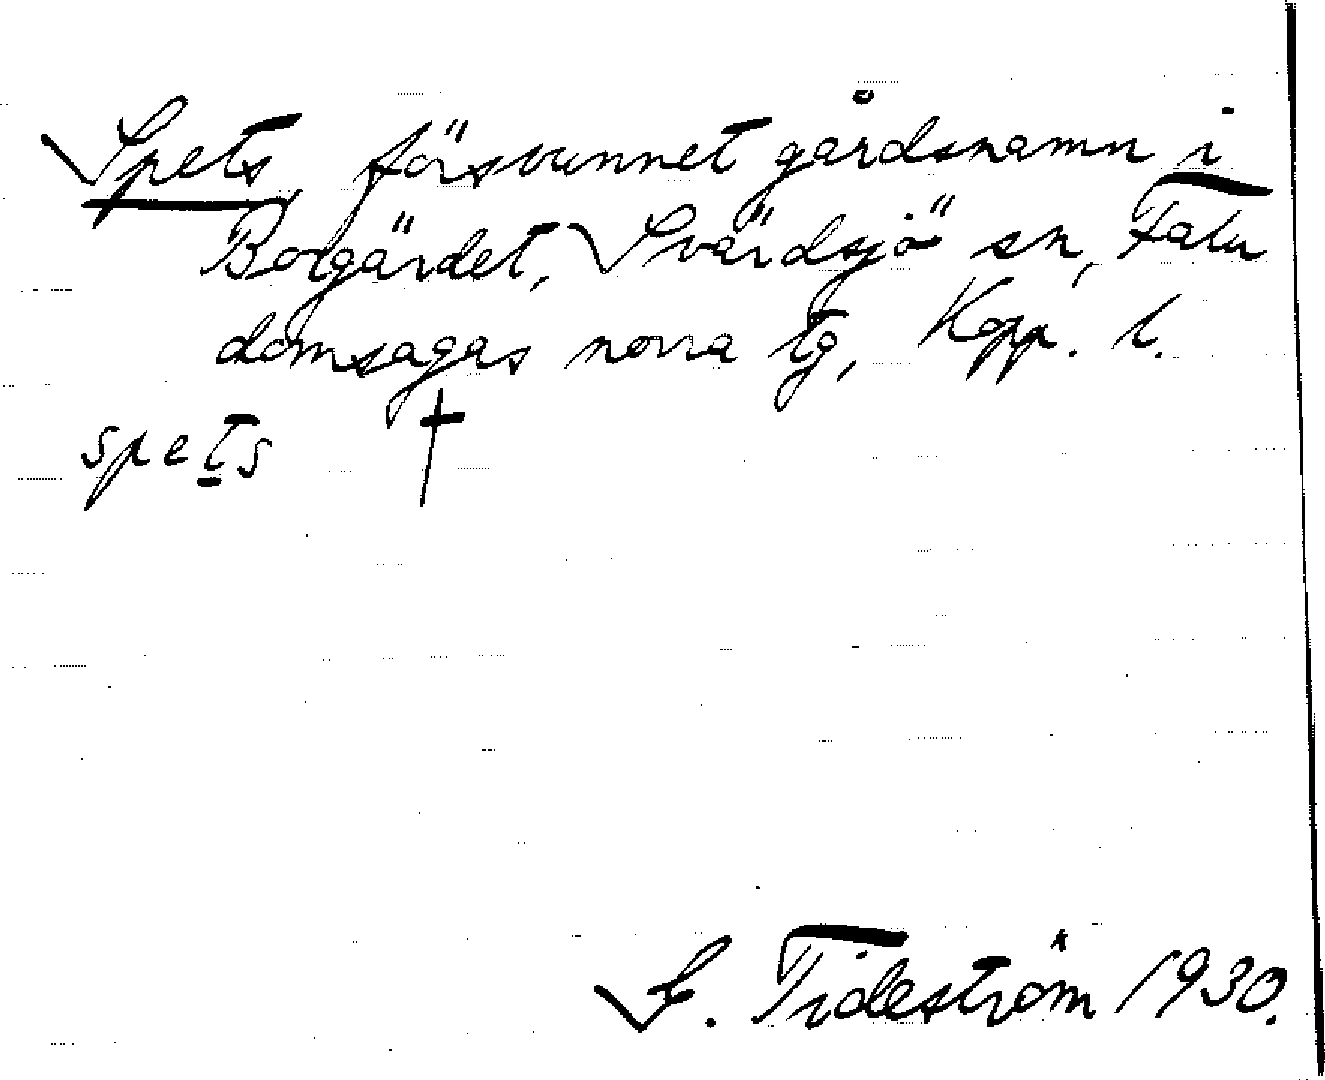 Spets, försvunnet gårdsnamn i
Borgärdet, Svärdsjö sn, Falu
domsagas norra tg, Kopp. l.
spets †
G. Tideström 1930.